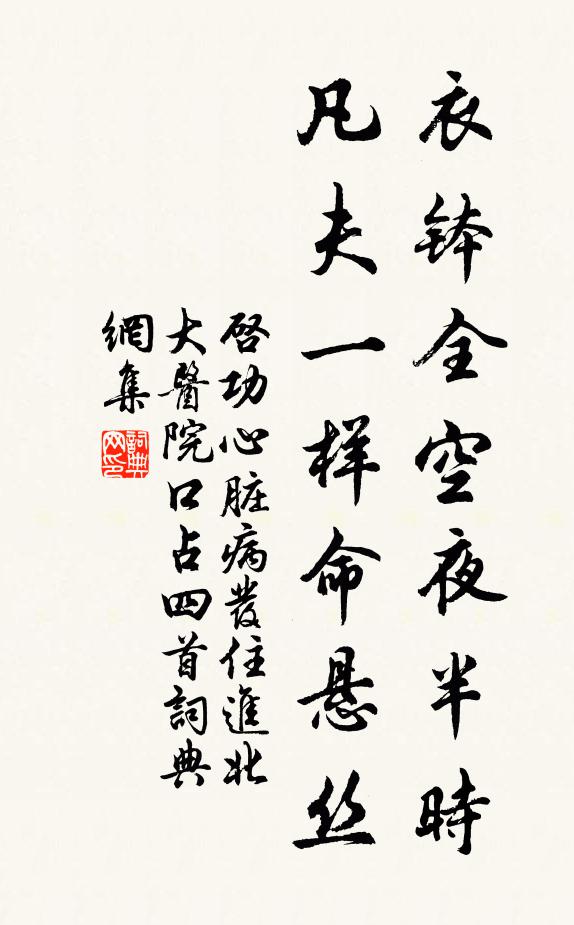 衣钵全空夜半時
凡夫一样命悬丝
啓功心脏病發住進北
大醫院口占四首詞典
網集
詞典
网印